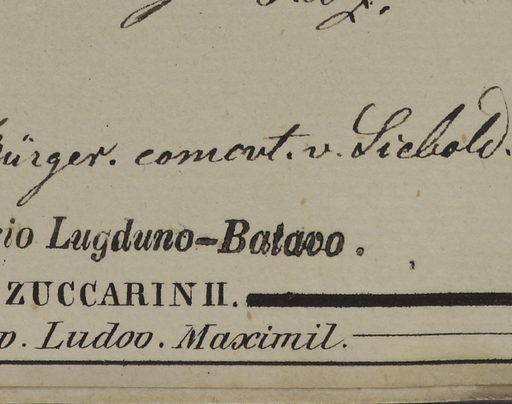 Bürger. comort. v. Siebold.
io Lugduno-Batavo.
ZUCCARINII.
Ludov. Maximil.